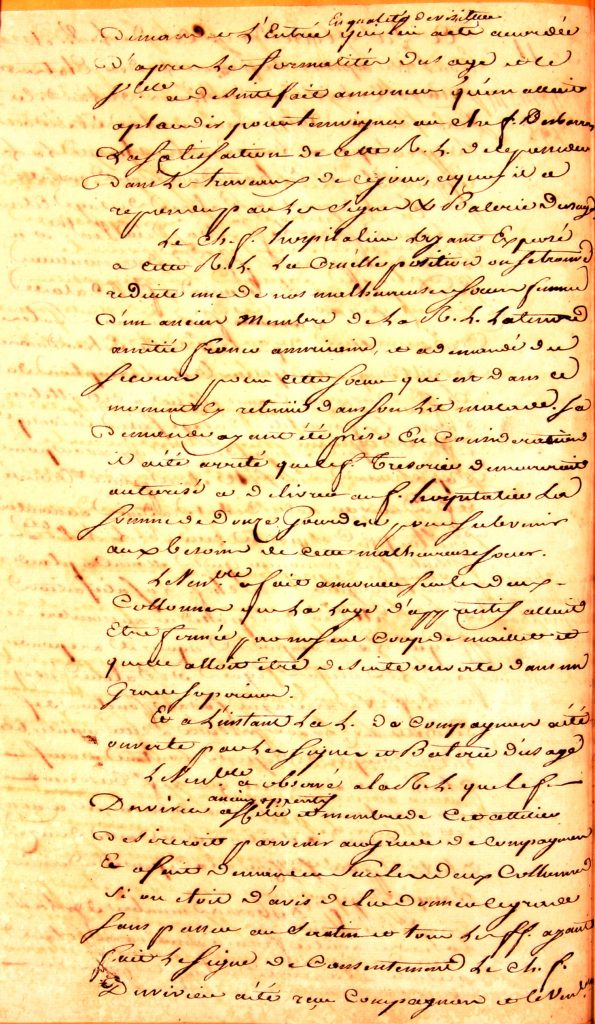 En qualité de visiteur
demande l'Entrée qui lui a été accordée
d'apres les formalités d'usage et le
a de suite fait annoncer qu'on alloit
aplaudir pour temoigner au Ch. f.
La Satisfaction de cette R. L. de le posseder
dans les travaux de ce jour, ce qui fut
repondu par les Signes & Baterie d'usage
Le Ch. f. hospitalier ayant Exposé
a cette R. L. La Cruelle position ou se trouve
reduite une de nos malheureuses Soeur femme
d'un ancien Membre de La R. L.
amitié franco americaine, et a demandé des
Secours pour cette Soeur qui est dans ce
moment cy retenüe dans son Lit malade. Sa
demande ayant été prise En Consideration
il a été arreté que le f. Tresorier demeureroit
autorisé a delivrer au f. hospitalier La
Somme de douze Gourdes pour Subvenir
aux besoins de cette malheureuse Soeur.
Le Venble a fait annoncer sur les deux
Collonnes que La Loge d'apprentif alloit
Etre fermée par un seul Coup de maillet et
qu'elle alloit être de suite ouverte dans un
Grade Superieur.
Et a L'instant La L. de Compagnon a été
ouverte par les Signes et Baterie d'usage
Le Venble a observé a la R. L. que le f.
ancien apprentif
et membre de Cet attelier
desireroit parvenir au Grade de Compagnon
Et a fait demander Sur les deux Collonnes
Si on etoit d'avis de lui donner ce grade
sans passer au Scrutin et tous les ff. ayant
fait Le Signe de Consentement Le Ch. f.
a été reçu Compagnon et le Venble